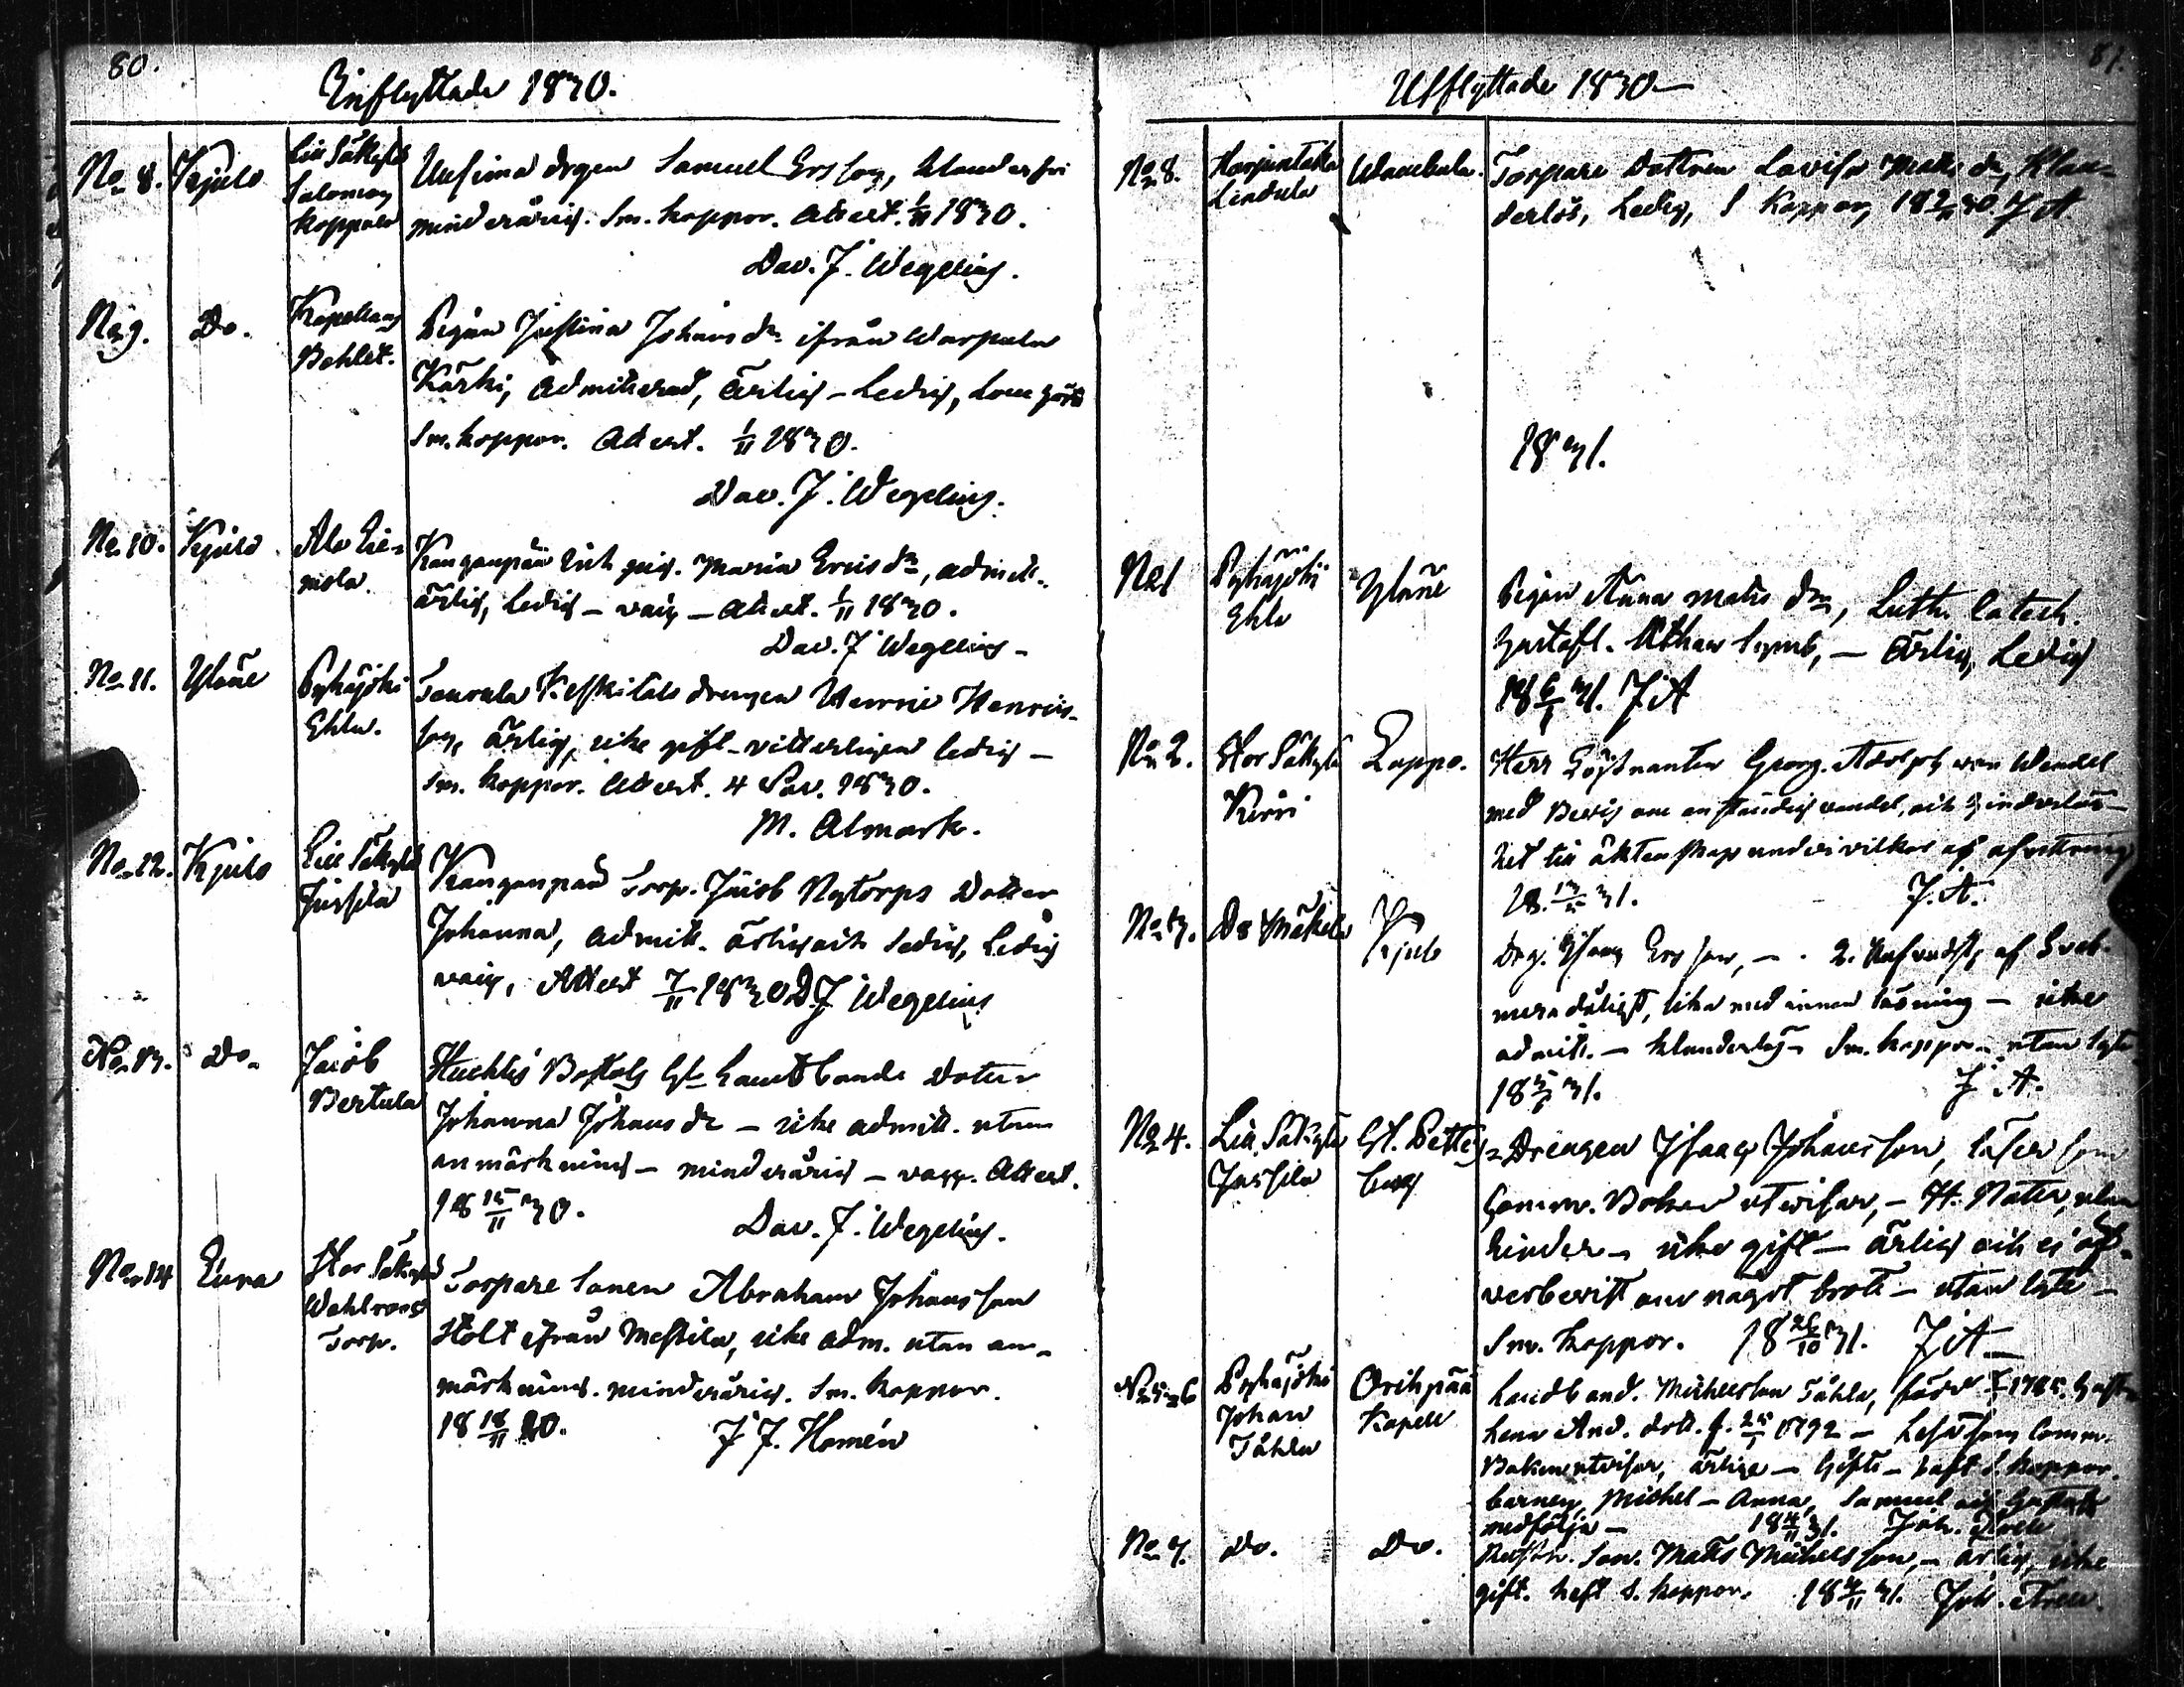 80.
Inflyttade 1830.
No 8. Kjulo Lill Säkylä Salomon Koppalo
Uusima drgen Samuel Ersson, klanderfri
minderårig. Sm. koppor. Attest. 1/11 1830.
Dav. J. Wegelius.
No 9. Do. Kapellans Bohlet.
Pigan Justina Johansdr ifrån Warpula
Kärki, admitterad, ärlig - Ledig,
Sm. koppor. Attest. 1/11 1830.
Dav. J. Wegelius.
No 10. Kjulo Alo Eimola.
Kangonpää Inh pig. Maria Ericsdr, admitt.
ärlig, ledig - - Attest. 1/11 1830.
Dav. J Wegelius -
No 11. Yläne Pyhäjoki Ehlo.
Keskitalo drengen Henric Henrics-
son, ärlig, icke gift - veterligen ledig -
Sm. koppor. Attest. 4 1830.
M. Almark.
No 12. Kjulo Lill Säkylä Jussila
Kangonpää Torp. Jacob Nytorps Dotter
Johanna, admitt. ärlig och Sedig, Ledig
Attest 7/11 1830 D. J Wegelius
No 13. Do. Jacob Bertula
Landbonde Dotter
Johanna Johansdr - icke admitt. utan
anmärkning - minderårig - Attest.
18 15/11 30.
Dav. J. Wegelius.
No 14 Eura Stor Säkylä Wahlroos Torp.
Torpare Sonen Abraham Johansson
Stolt ifrån Mestila, icke adm. utan an-
märkning. minderårig. Sm. koppor.
18 18/11 30.
J J. Homén
81.
Utflyttade 1830 -
No 8. Korpiutula Lindula
Torpare Dottren Lovisa Mattsdr, Klan-
derlös, Ledig, S Koppor, 18 30 JA
1831.
No 1 Pyhäjoki Ehlo Yläne
Pigan Anna Matts dr, Luth. Catech.
Hustafl. Athan Symb, - ärlig, Ledig
18 6/1 31. JA
No 2. Stor Säkylä Kirri Loppo.
Herr Georg Adolph von Wendel
med Bevis om anständig vandel, och hinderlös-
het till äktenskap under vilkor af
18 31. J. A.
No 3. Do Mäkelä Kjulo
Drg. Isaac Ersson, - 2. af Sveb.
mera dåligt, lika med innan läsning - icke
admitt. - klanderlös - Sm. koppor - utan lyte
18 31. J A.
No 4. Lill Säkylä Jussila
Drengen Isaac Johansson, läser som
Comm. Boken utvisar, - H. Natten, utan
hinder - icke gift - ärlig och ej öf-
verbevist om något brott - utan lyte -
Sm. koppor. 18 26/10 31. JA -
No 5-6 Pyhäjoki Johan Tåhla Oripää Kapell
Landbond. Michelsson Tåhla, född
Lena And. dott. f. 1792 - Läsa som Comm.
Boken utvisar, ärliga - Gifta - haft S koppor.
barnen, Michel - Anna, Samuel och Gustaf
medfölja - 18 4/11 31. Joh.
No 7. Do. Do.
Son. Matts Michelsson, - ärlig, icke
gift. haft S. koppor. 18 4/11 31. Joh.